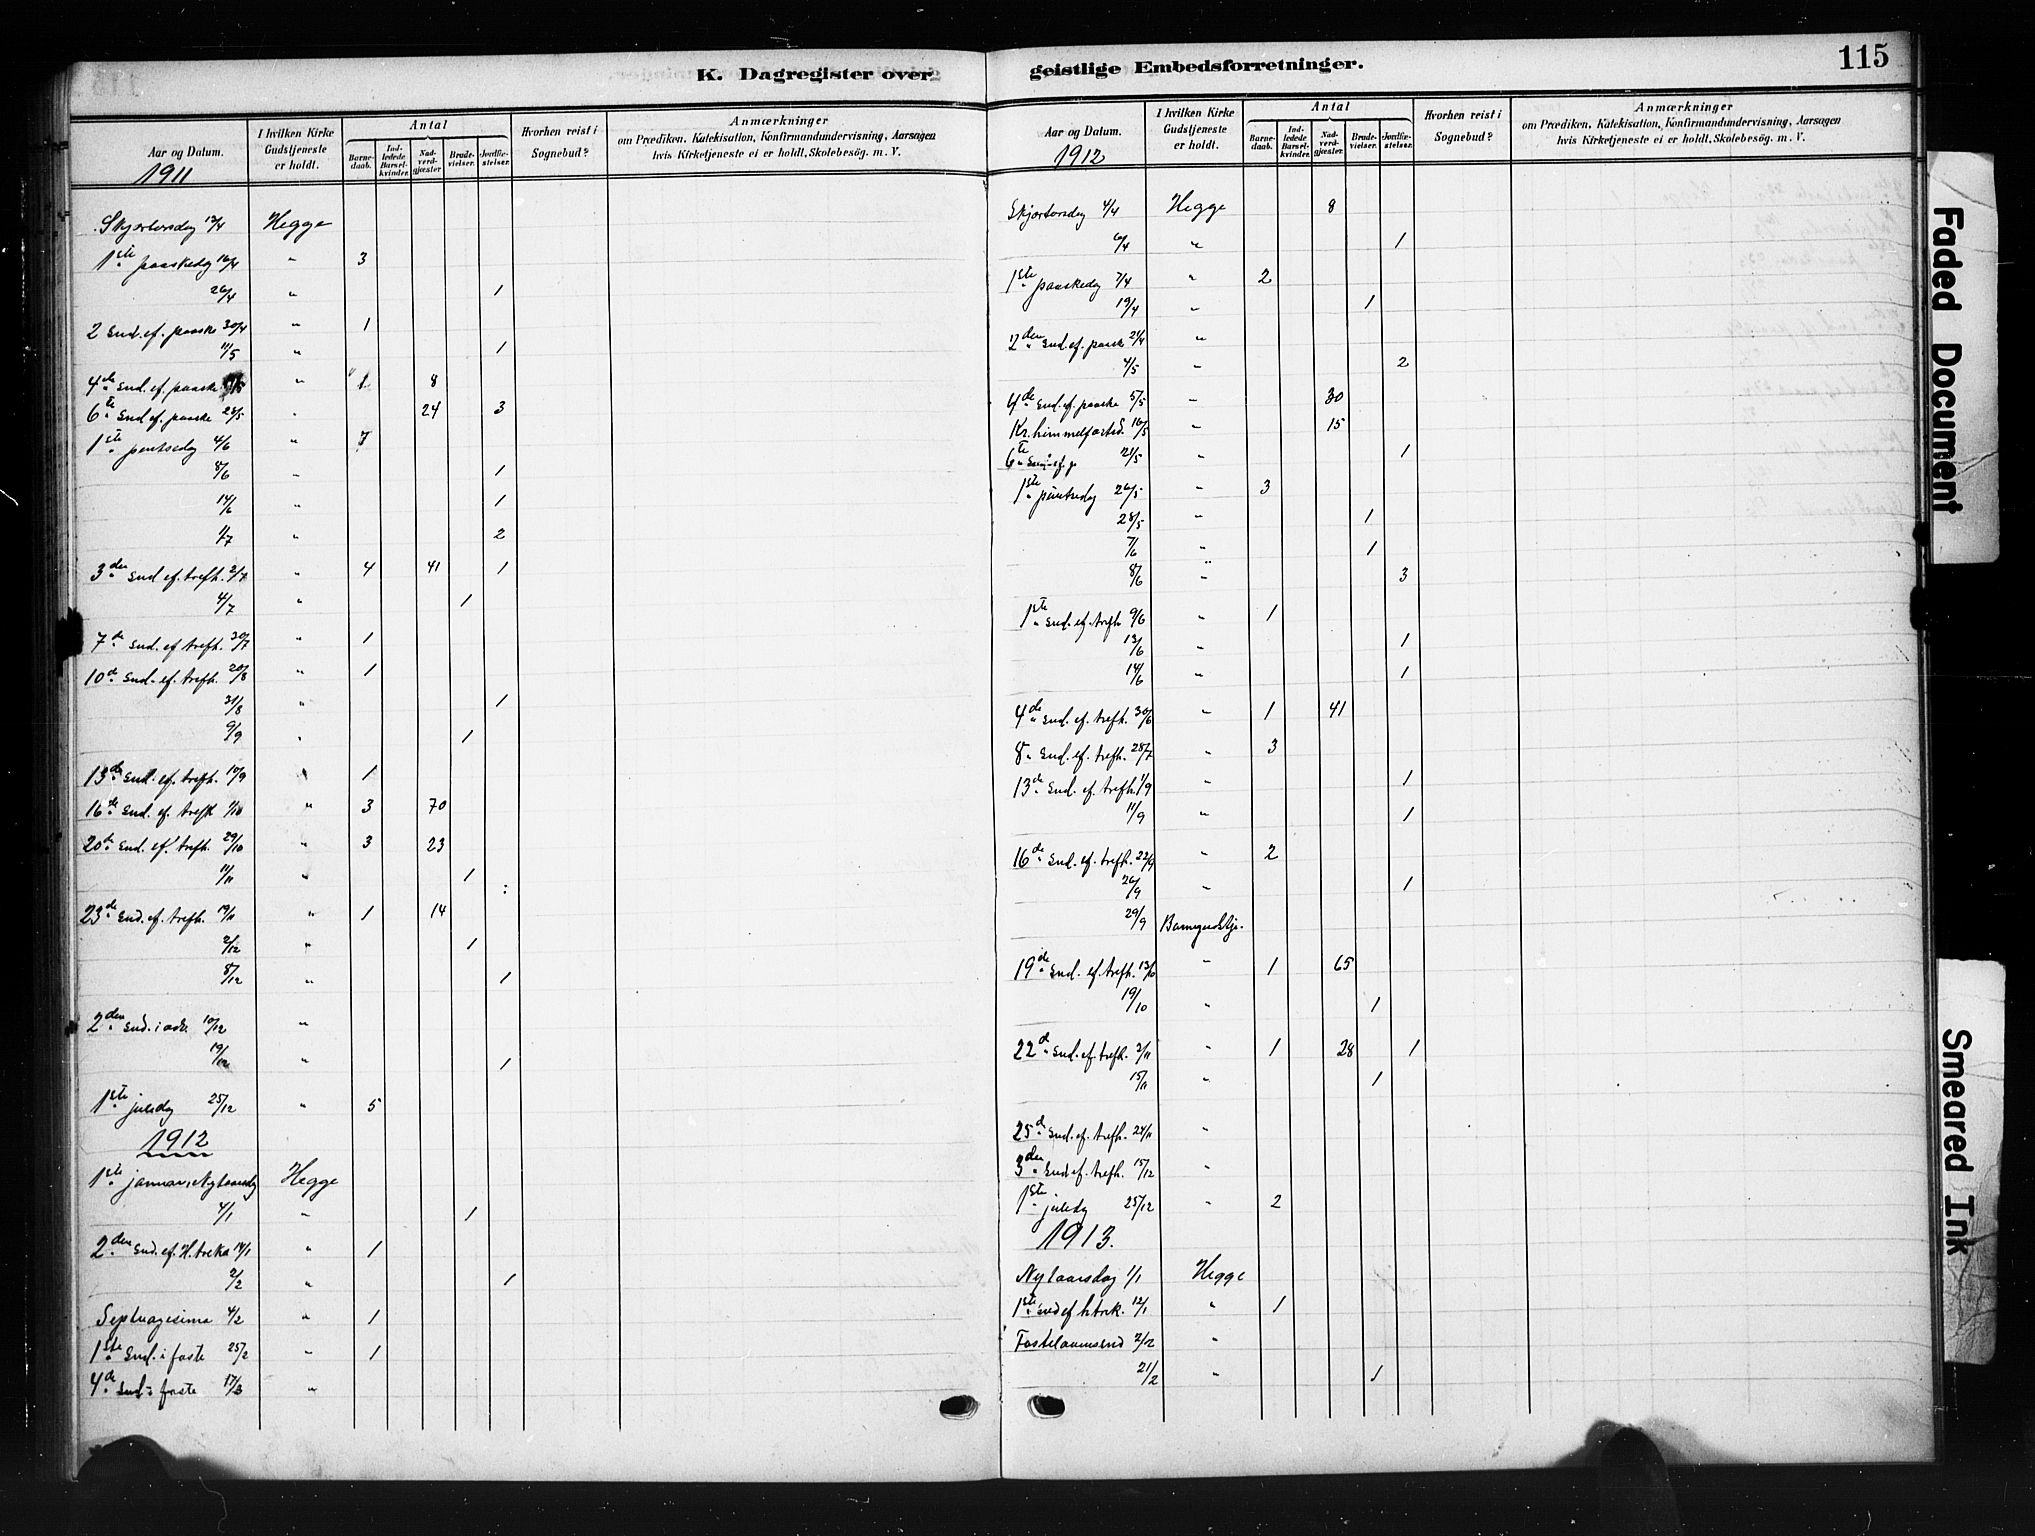 K. Dagregister over
Aar og Datum.
1911
I hvilken Kirke Gudstjeneste er holdt.
Antal
Barne-daab.
Ind-ledede Barsel-kvinder.
Nad-verd-gjæster.
Brude-vielser.
Jordfæ-stelser.
Hvorhen reist i Sognebud?
Anmærkninger
om Prædiken, Katekisation, Konfirmandundervisning, Aarsagen
hvis Kirketjeneste ei er holdt, Skolebesøg. m. V.
Skjærtorsdag 13/4 Hegge
1ste paaskedag 16/4 " 3
26/4 " 1
2 Snd. ef. paaske 30/4 " 1
11/5 " 1
4de Snd. ef. paaske " 1 8
6te Snd. ef. paaske 28/5 " 24 3
1ste pintsedag 4/6 " 7
8/6 " 1
14/6 " 1
1/7 " 2
3den Snd. ef. trefh. 2/7 " 4 41 1
4/7 " 1
7de Snd. ef trefh. 30/7 " 1
10de Snd. ef. trefh. 20/8 " 1
31/8 " 1
9/9 " 1
13de Snd. ef. trefh. 10/9 " 1
16de Snd. ef. trefh 1/10 " 3 70
20de Snd. ef. trefh. 29/10 " 3 23
11/11 " 1
23de Snd. ef. trefh. 19/11 " 1 14
2/12 " 1
8/12 " 1
2den Snd. i adv. 10/12 "
19/12 " 1
1ste juledag 25/12 " 5
1912
1ste januar, Nytaarsdag Hegge
4/1 " 1
2den Snd. ef. H. treko 14/1 " 1
2/2 " 1
Septuagesima 4/2 " 1
1ste Snd. i faste 25/2 " 1
4de Snd. i faste 17/3 "
geistlige Embedsforretninger.
115
Aar og Datum.
1912
I hvilken Kirke Gudstjeneste er holdt.
Antal
Barne-daab.
Ind-ledede Barsel-kvinder.
Nad-verd-gjæster.
Brude-vielser.
Jordfæ-stelser.
Hvorhen reist i Sognebud?
Anmærkninger
om Prædiken, Katekisation, Konfirmandundervisning, Aarsagen
hvis Kirketjeneste ei er holdt, Skolebesøg. m. V.
Skjærtorsdag 4/4 Hegge 8
6/4 " 1
1ste paaskedag 7/4 " 2
19/4 " 1
2den Snd. ef. paask 21/4 "
4/5 " 2
4de Snd. ef. paaske 5/5 " 30
Kr. himmelfartsd. 16/5 " 15
6te Snd. ef. p 21/5 " 1
1ste pintsedag 26/5 " 3
28/5 " 1
7/6 " 1
8/6 " 3
1ste Snd. ef. trefh 9/6 " 1
13/6 " 1
14/6 " 1
4de Snd. ef. trefh. 30/6 " 1 41
8" Snd. ef. trefh. 28/7 " 3
13de Snd. ef. trefh. 1/9 " 1
11/9 " 1
16de Snd. ef. trefh. 22/9 " 2
26/9 " 1
29/9 Barnegudstje.
19de Snd. ef. trefh. 13/10 " 1 65
19/10 " 1
22d Snd. ef. trefh. 2/11 " 1 28 1
15/11 " 1
25d Snd. ef. trefh. 24/11 "
3den Snd ef. trefh. 15/12 "
1ste juledag 25/12 " 2
1913.
Nytaarsdag 1/1 Hegge
1ste Snd ef h trek. 12/1 " 1
Fastelavnssnd 2/2 "
21/2 " 1
Faded Document
Smeared Ink